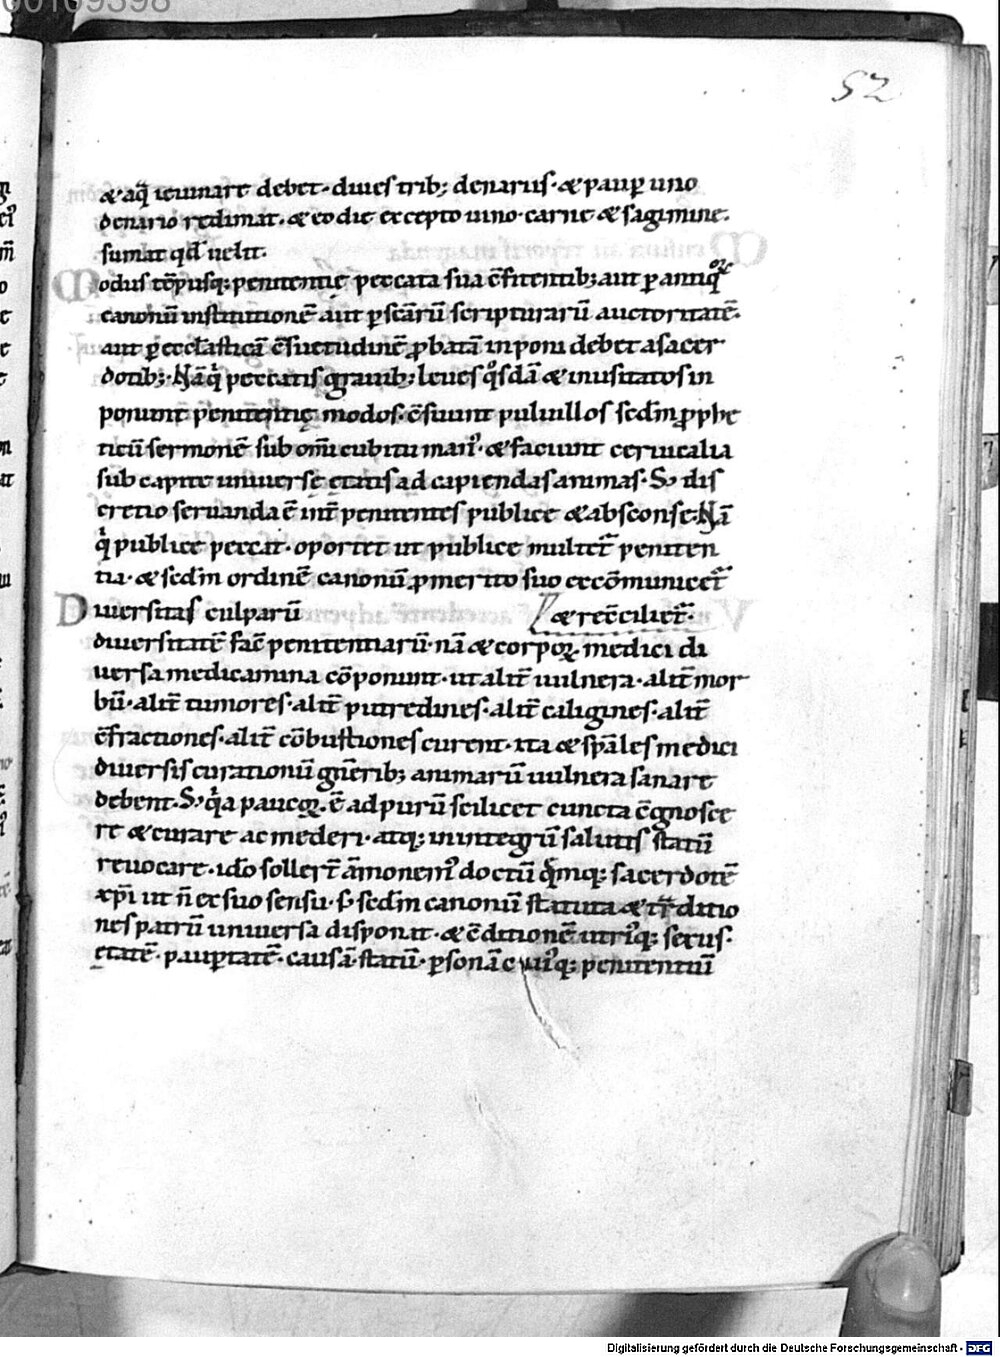 00109398
52
& aq̃ ieiunare debet· diues trib; denariis· & paup̱ uno
denario redimat· & eo die excepto uino· carne & sagimine·
sumat qđ uelit·
Modus tēpusq; penitentię peccata sua c̄fitentib; aut p̱ antiqͦꝝ
canonū institutionē aut p̱ scārū scripturarū auctoritatē·
aut p̱ eccl̄asticā c̄suetudinē ꝓbatā inponi debet a sacer
dotib;· Nā q̇ peccatis grauib; leues qͦsdā & inusitatos in
ponunt penitentię modos· c̄suunt puluillos scdm̄ ꝓphe
ticū sermonē sub om̄i cubitu man᾿· & faciunt ceruicalia
sub capite uniuersę ętatis ad capiendas animas· S; dis
cretio seruanda ē int̄ penitentes publice & absconse· Nā
q̇ publice peccat· oportet ut publice multet᷑ peniten
tia· & scdm̄ ordinē canonū ꝓ merito suo excōmunicet᷑
Diuersitas culparū & rec̄ciliet᷑·
diuersitatē fac̄ penitentiarū· nā & corpoꝝ medici di
uersa medicamina cōponunt· ut alit̄ uulnera· alit̄ mor
bū· alit̄ tumores· alit̄ putredines· alit̄ caligines· alit̄
c̄fractiones· alit̄ cōbustiones curent· ita & sp̄ales medici
diuersis curationū gn̄erib; animarū uulnera sanare
debent· S; q̇a paucoꝝ ē ad purū scilicet cuncta c̄gnosce
re & curare ac mederi· atq; in integrū salutis statū
reuocare· ido sollert̄ āmonem᾿ doctū q̄mq; sacerdotē
xp̄i ut n̄ ex suo sensu· s; scdm̄ canonū statuta & tr̄ditio
nes patrū uniuersa disponat· & c̄ditionē utri᾿q; sexus·
ętatē· paup̱tatē· causā· statū· p̱sonā cui᾿q; penitentiū
Digitalisierung gefördert durch die Deutsche Forschungsgemeinschaft - DFG